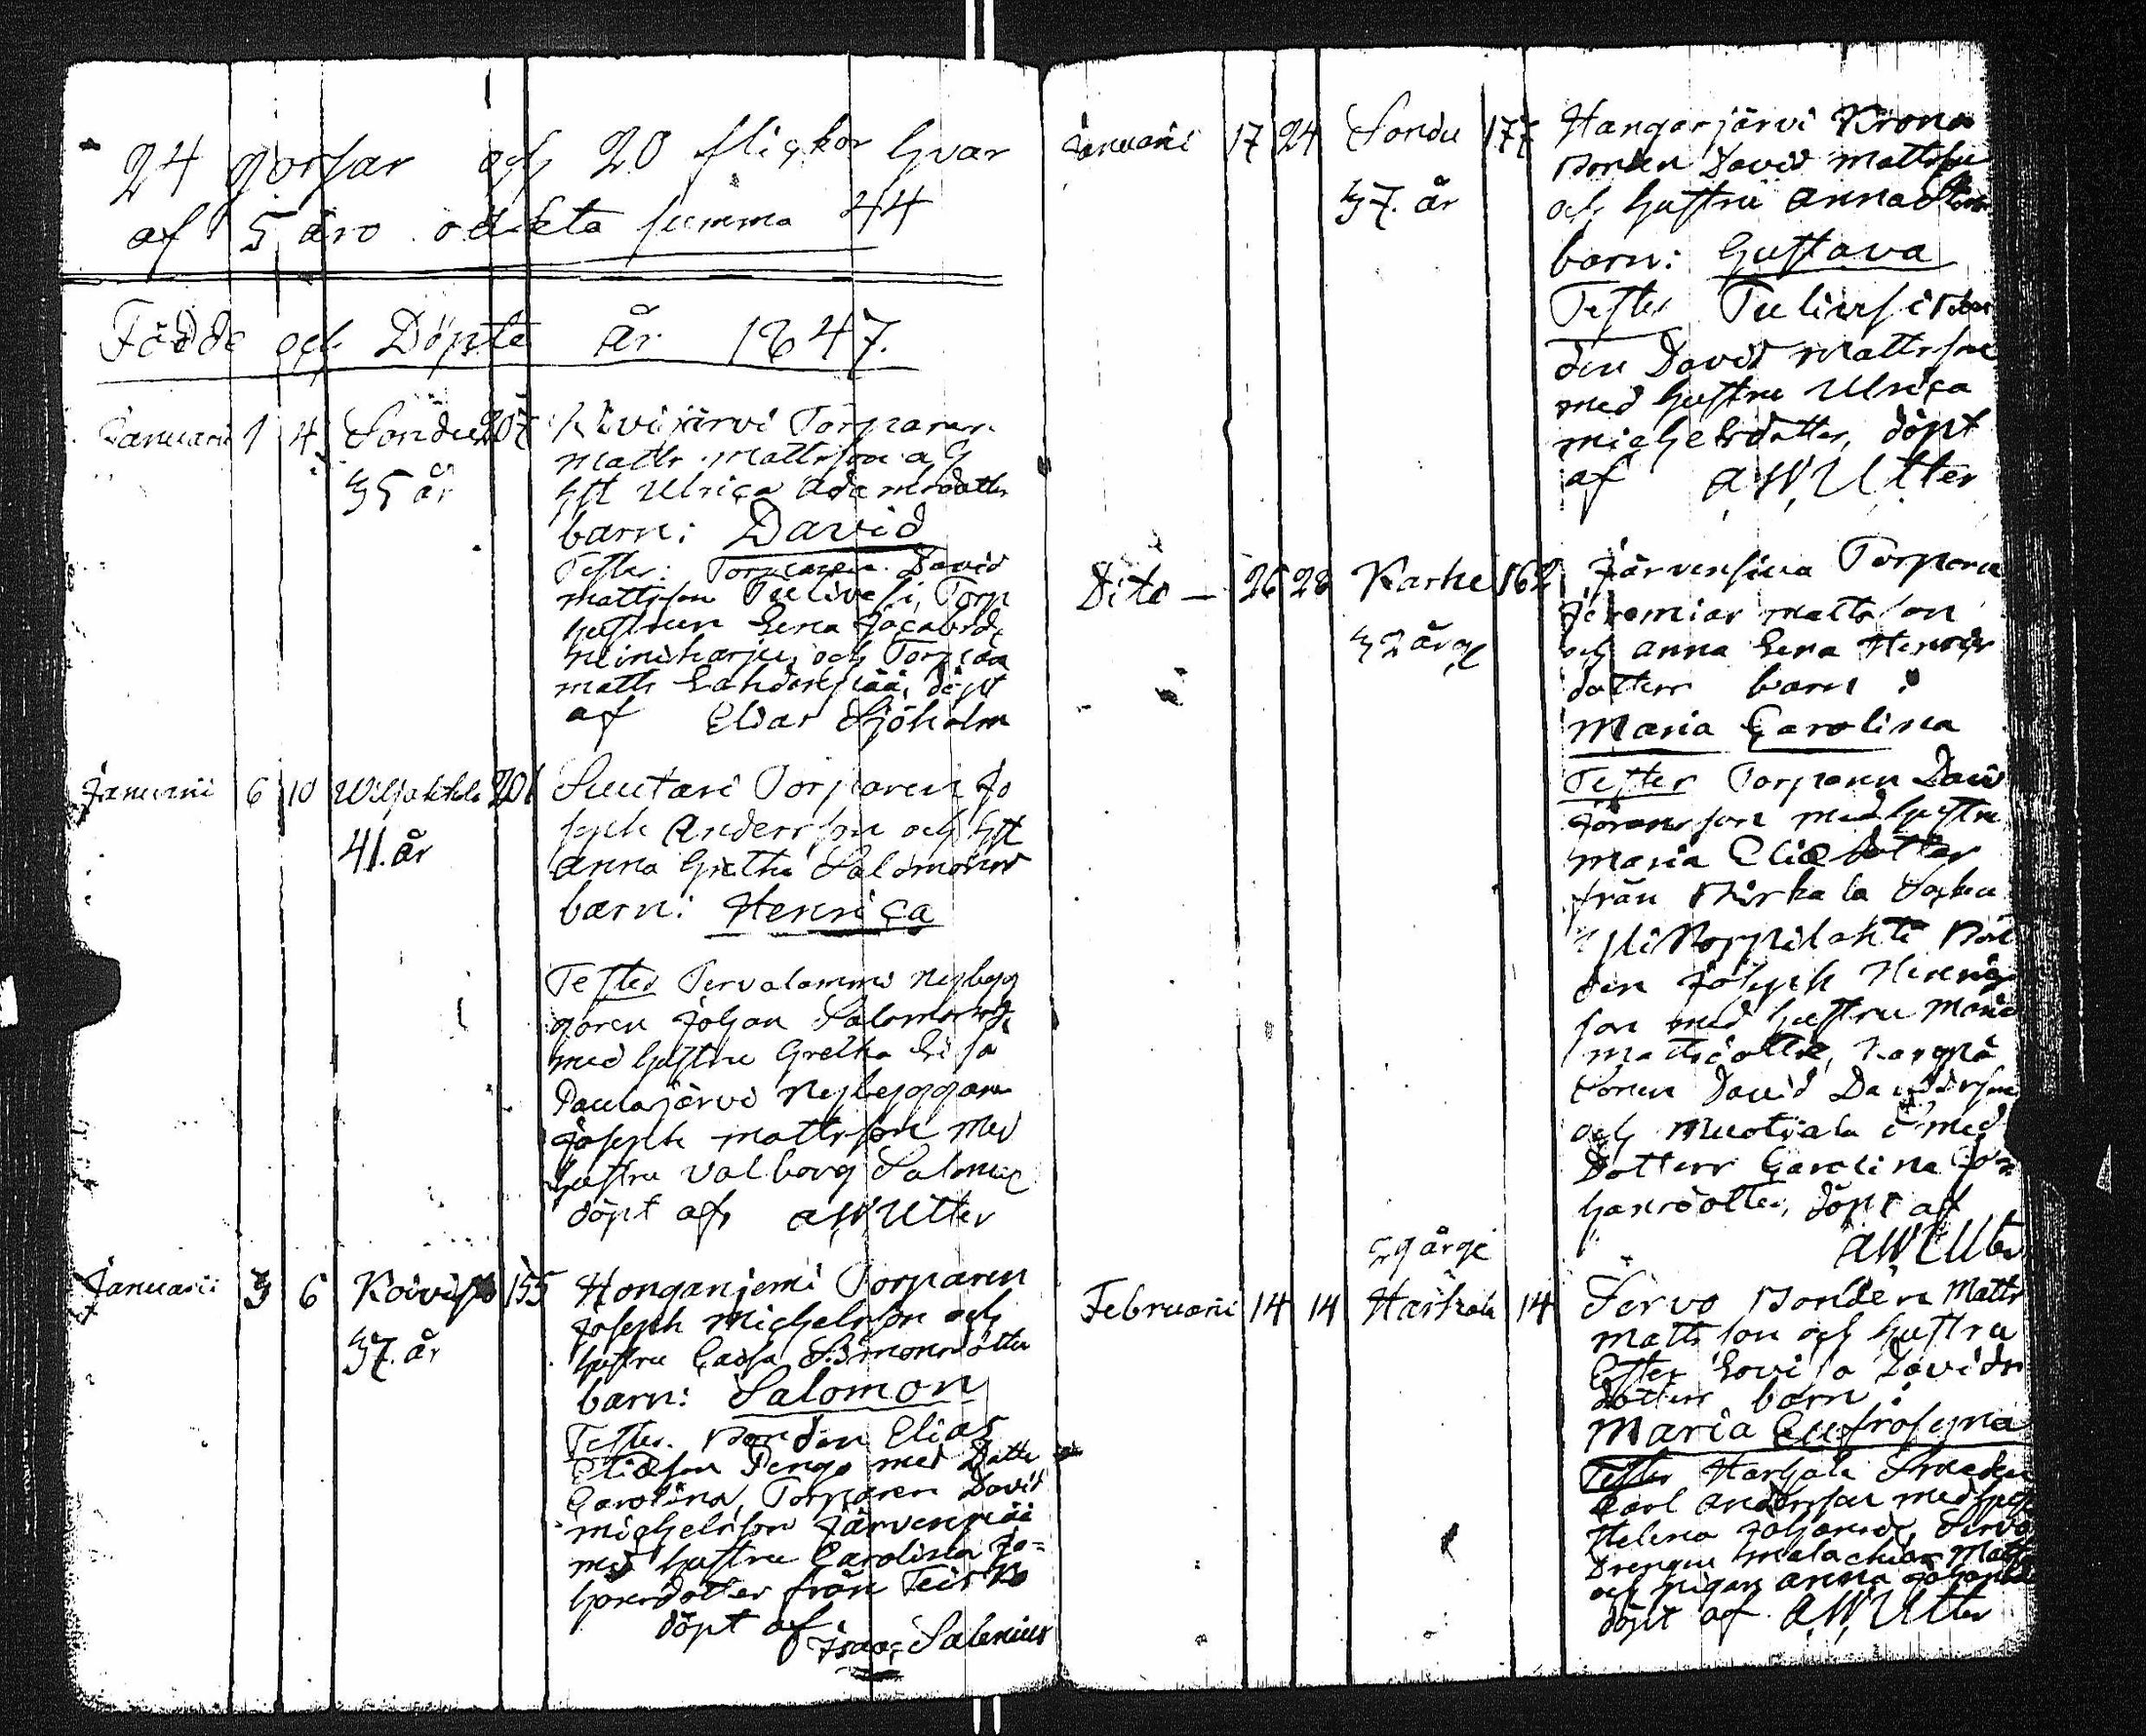 24 gossar och 20 flickor hvar
af 5 äro oäckta summa 44
Födde och Döpte År 1847.
Januarii 1 4 Sondu 207 Kivijärvi Torparen
Matts Mattsson a h
35 år hst Ulrica Adamsdotter
barn: David
Testes: Torparen David
Mattsson Tulivesi, Torp
hustrun Lena Jacobsd.
och Torp
Matts Landenpää, döpt
af Elias Sjöholm
Januarii 6 10 201 Suutari Torparen Jo
seph Andersson och hst
41. år Anna Gretha Salomonsd
barn: Henrica
Testes Tervalammi Nybygg
garen Johan Salomonss
med hustru Gretha Lisa
Paulajärvi Nybyggaren
Joseph Mattsson med
hustru Valborg Salomosd
döpt af A W Utter
Januarii 3 6 Koivisto 155 Honganjemi Torparen
Joseph Michelsson och
37. år hustru Cajsa Simonsdotter
barn: Salomon
Testes. Bonden Elias
Eliasson Pengo med Dotter
Carolina, Torparen David
Michelsson Järvenpää
med hustru Carolina Jo=
hansdotter från
döpt af
Isaac Salenius
Januarii 17 24 Sondu 177 Hangasjärvi Krono
Bonden David Mattsson
37. år och hustru Anna
barn: Gustava
Testes Tulivesi Bon
den David Mattsson
med hustru Ulrica
Michelsdotter, döpt
af A W Utter
Dito — 26 28 Karhe 162 Järvensivu Torparen
Jeremias Mattsson
32 årg och Anna Lena Henrics
dotters barn:
Maria Carolina
Testes Torparen David
Göransson med hustru
Maria Eliædotter
från Birkala Socken
Yli Noppilahti Bon
den Joseph Henrics
son med hustru Maria
Mattsdotter,
sonen David Davidsson
och Muotiala med
Dotter Carolina Jo=
hansdotter, döpt af
A W Utter
29 årge
Februarii 14 14 Harhala 14 Servo Bonden Matts
Mattsson och hustru
Ester Lovisa Davids
dotters barn:
Maria Eufrosyna
Testes Harhala Smeden
Carl Andersson med
Helena Johansd, Servo
Drengen Malachias Matts
och pigan Anna
döpt af A W Utter